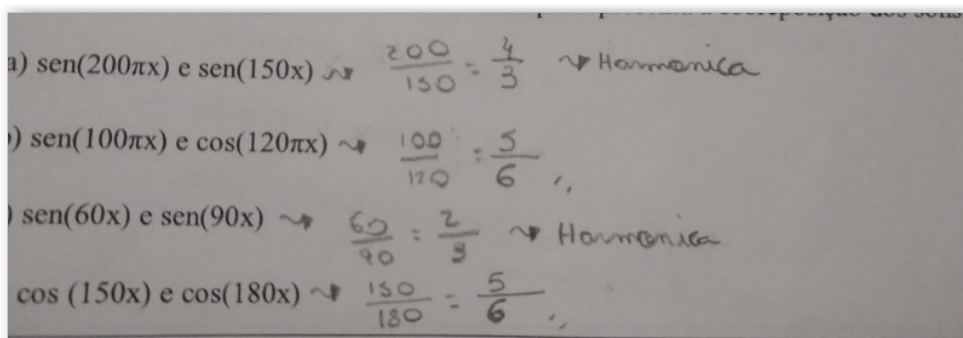 a) sen(200πx) e sen(150x) ⇝ 200/150 = 4/3 ⇝ Harmonica
) sen(100πx) e cos(120πx) ⇝ 100/120 = 5/6 //
) sen(60x) e sen(90x) ⇝ 60/90 = 2/3 ⇝ Harmonica
cos (150x) e cos(180x) ⇝ 150/180 = 5/6 //